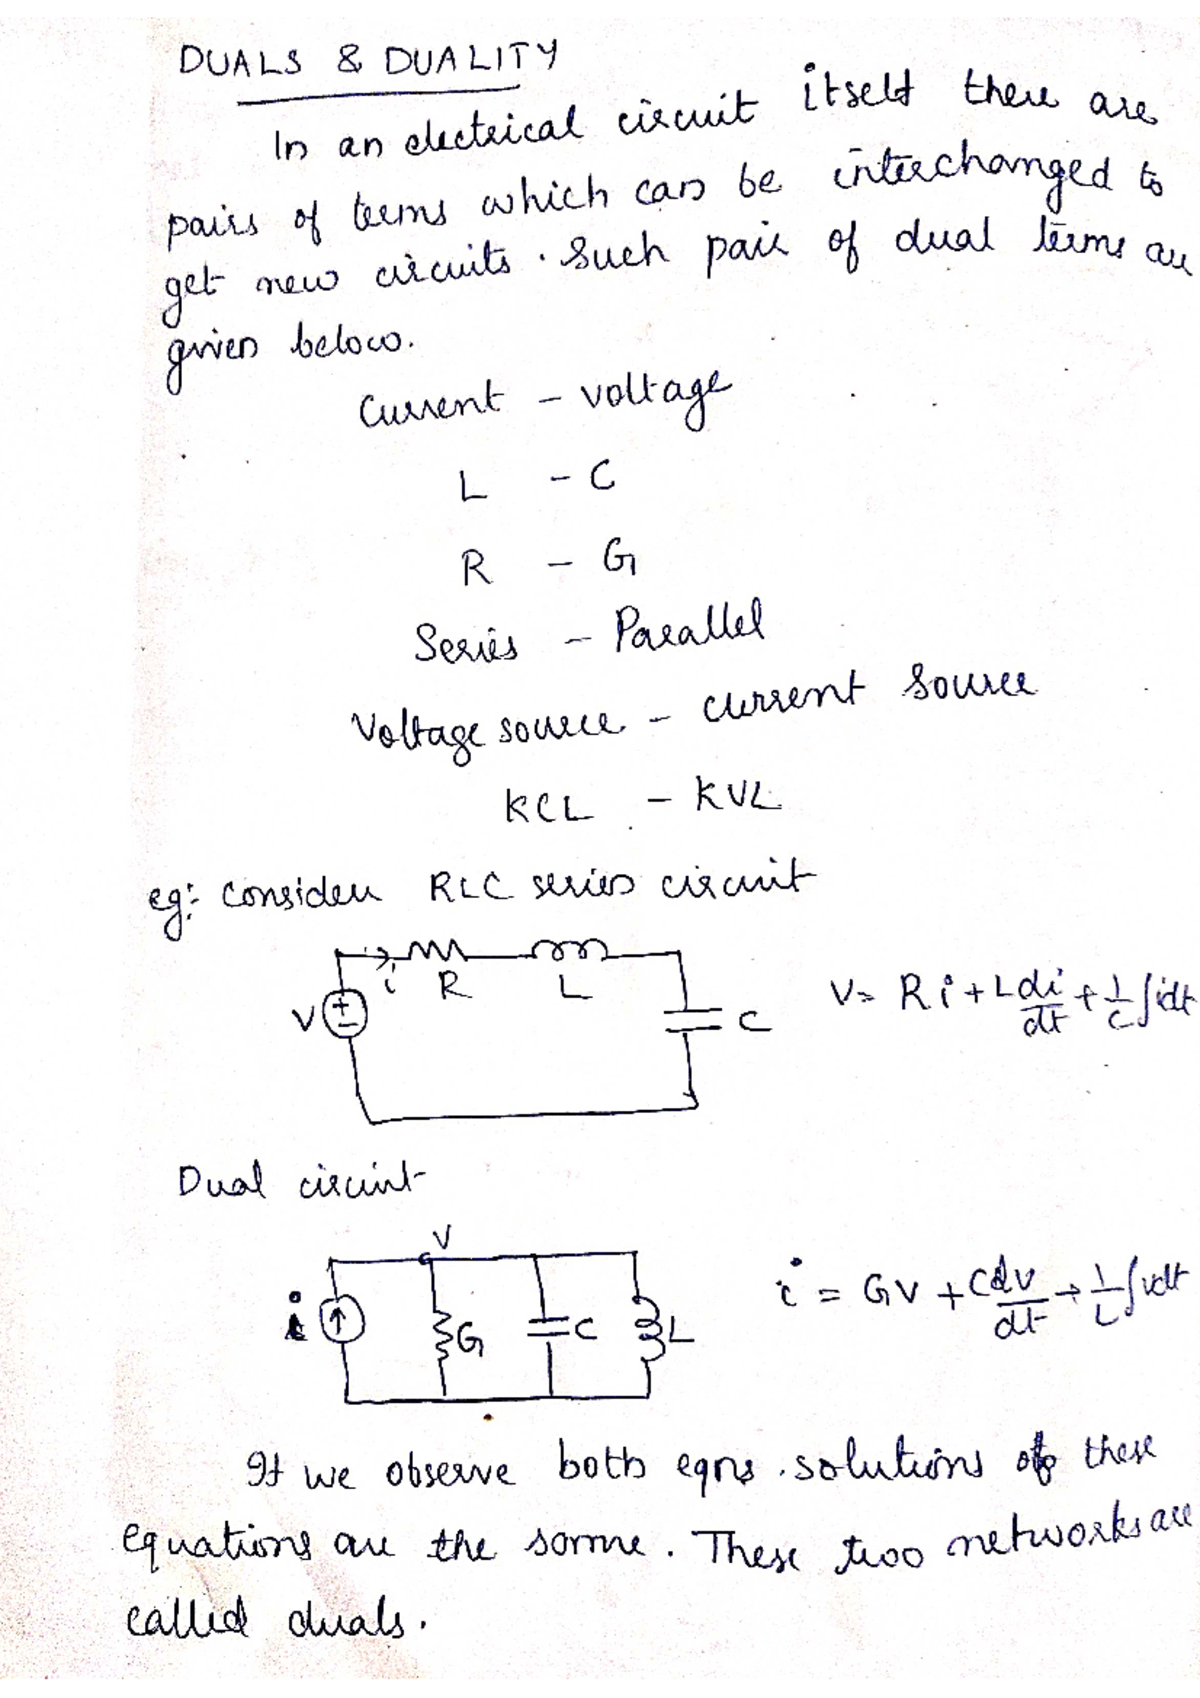 DUALS & DUALITY
In an electrical circuit itself there are
pairs of terms which can be interchanged to
get new circuits. Such pair of dual terms are
given below.
Current - voltage
L - C
R - G
Series - Parallel
Voltage source - current source
KCL - KVL
eg: consider RLC series circuit
i R L
V + - C
V = Ri + L di/dt + 1/C ∫idt
Dual circuit
V
i G C L
i = GV + C dv/dt + 1/L ∫vdt
If we observe both eqns. solutions of these
equations are the same. These two networks are
called duals.